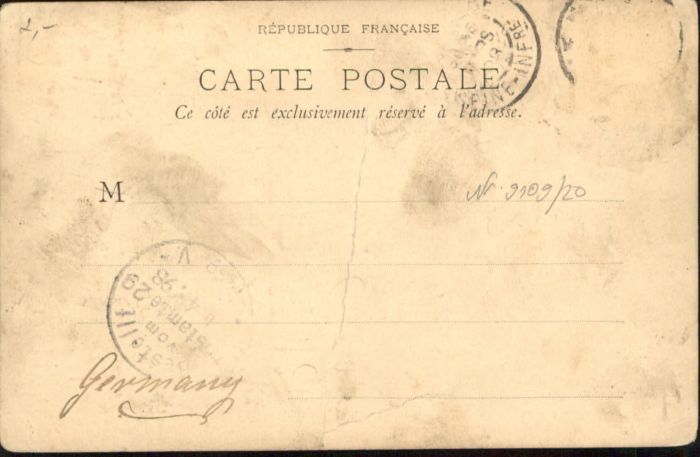 2,-
RÉPUBLIQUE FRANÇAISE
CARTE POSTALE
Ce côté est exclusivement réservé à l'adresse.
SEINE-INFRE
98
M
Nr. 9109/20
V
.98
29
vom
Germany